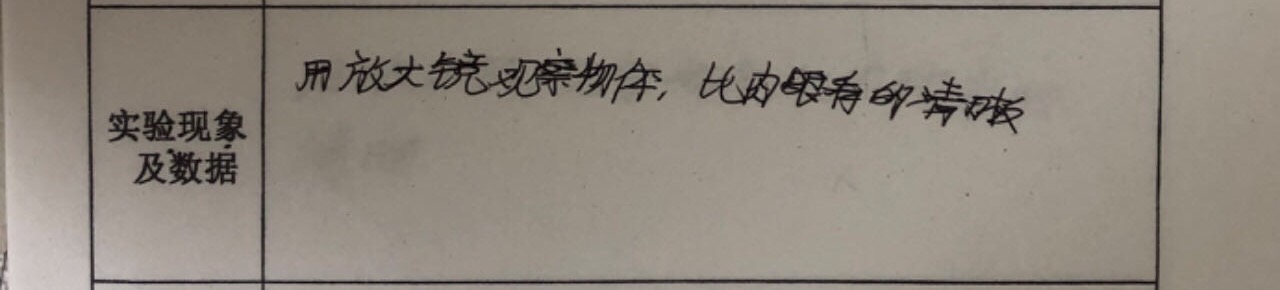 用放大镜观察物体，比肉眼看的清晰
实验现象
及数据